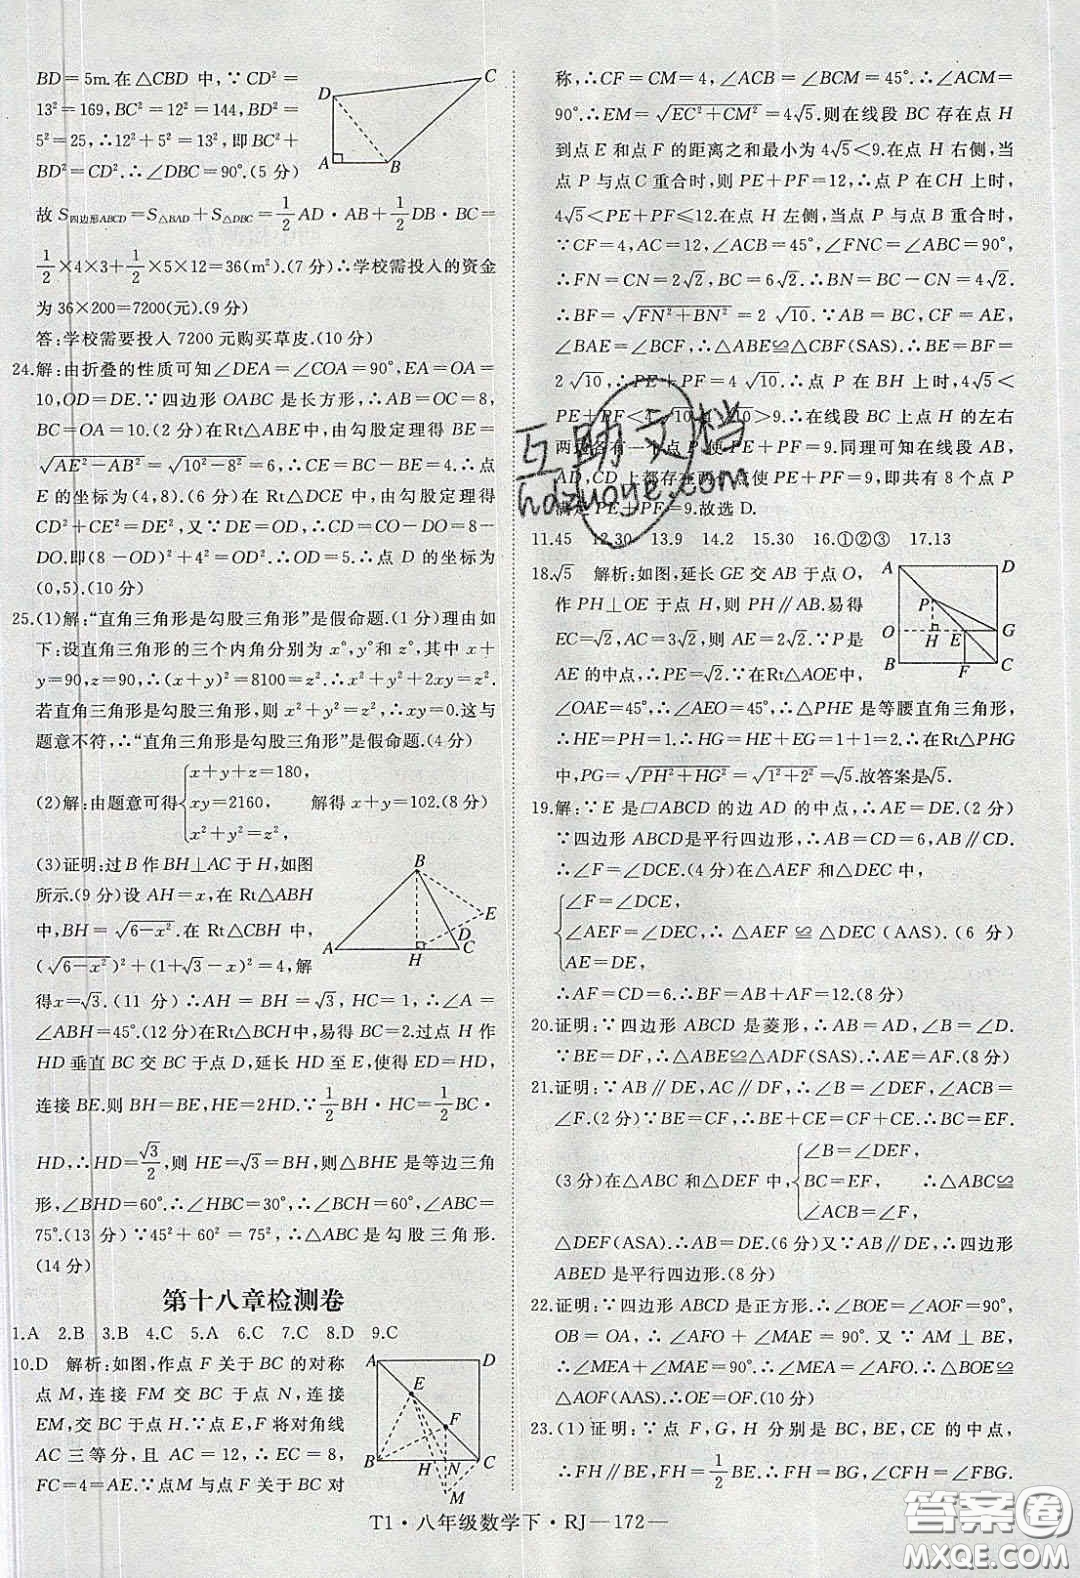 BD=5m.在△CBD 中,∵CD²=
13²=169,BC²=12²=144,BD²=
5²=25,∴12²+5²=13²,即BC²+
BD²=CD².∴∠DBC=90°.(5分)
故S四边形ABCD=S△BAD+S△DBC=1/2AD·AB+1/2DB·BC=
1/2×4×3+1/2×5×12=36(m²).(7分)∴学校需投入的资金
为36×200=7200(元).(9分)
答:学校需要投入7200元购买草皮.(10分)
24.解:由折叠的性质可知∠DEA=∠COA=90°,EA=OA=
10,OD=DE.∵四边形OABC是长方形,∴AB=OC=8,
BC=OA=10.(2分)在Rt△ABE中,由勾股定理得BE=
√AE²-AB²=√10²-8²=6.(4分)∴CE=BC-BE=4.∴点
E的坐标为(4,8).(6分)在Rt△DCE中,由勾股定理得
CD²+CE²=DE²,又∵DE=OD,∴CD=OC-OD=8-
DO.即(8-OD)²+4²=OD².∴OD=5.∴点D的坐标为
(0,5).(10分)
25.(1)解:“直角三角形是勾股三角形”是假命题.(1分)理由如
下:设直角三角形的三个内角分别为x°,y°和z°,其中x+
y=90,z=90,∴(x+y)²=8100=z².∴x²+y²+2xy=z².
若直角三角形是勾股三角形,则x²+y²=z²,∴xy=0.这与
题意不符,∴“直角三角形是勾股三角形”是假命题.(4分)
x+y+z=180,
(2)解:由题意可得 xy=2160, 解得x+y=102.(8分)
x²+y²=z²,
(3)证明:过B作BH⊥AC于H,如图
所示.(9分)设AH=x,在Rt△ABH
中,BH=√6-x².在Rt△CBH中,
(√6-x²)²+(1+√3-x)²=4,解
得x=√3.(11分)∴AH=BH=√3,HC=1,∴∠A=
∠ABH=45°.(12分)在Rt△BCH中,易得BC=2.过点H作
HD垂直BC交BC于点D,延长HD至E,使得ED=HD,
连接BE.则BH=BE,HE=2HD.∵1/2BH·HC=1/2BC·
HD,∴HD=√3/2,则HE=√3=BH,则△BHE是等边三角
形,∠BHD=60°.∴∠HBC=30°,∴∠BCH=60°,∠ABC=
75°.(13分)∵45²+60²=75²,∴△ABC是勾股三角形.
(14分)
第十八章检测卷
1.A 2.B 3.B 4.C 5.A 6.C 7.C 8.D 9.C
10.D 解析:如图,作点F关于BC的对称
点M,连接FM交BC于点N,连接
EM,交BC于点H.∵点E,F将对角线
AC三等分,且AC=12,∴EC=8,
FC=4=AE.∵点M与点F关于BC对
称,∴CF=CM=4,∠ACB=∠BCM=45°.∴∠ACM=
90°.∴EM=√EC²+CM²=4√5.则在线段BC存在点H
到点E和点F的距离之和最小为4√5<9.在点H右侧,当
点P与点C重合时,则PE+PF=12,∴点P在CH上时,
4√5<PE+PF≤12.在点H左侧,当点P与点B重合时,
∵CF=4,AC=12,∠ACB=45°,∠FNC=∠ABC=90°,
∴FN=CN=2√2,BC=6√2.∴BN=BC-CN=4√2.
∴BF=√FN²+BN²=2√10.∵AB=BC,CF=AE,
∠BAE=∠BCF,∴△ABE≌△CBF(SAS).∴BE=BF=
2√10,∴PE+PF=4√10.∴点P在BH上时,4√5<
PE+PF≤4√10.∵4√10>9.∴在线段BC上点H的左右
两边各有一个点P使PE+PF=9.同理可知在线段AB,
AD,CD上都存在两个点使PE+PF=9,即共有8个点P
满足PE+PF=9.故选D.
11.45 12.30 13.9 14.2 15.30 16.①②③ 17.13
18.√5 解析:如图,延长GE交AB于点O,
作PH⊥OE于点H,则PH∥AB.易得
EC=√2,AC=3√2,则AE=2√2.∵P是
AE的中点,∴PE=√2.∵在Rt△AOE中,
∠OAE=45°,∴∠AEO=45°,∴△PHE是等腰直角三角形,
∴HE=PH=1.∴HG=HE+EG=1+1=2.∴在Rt△PHG
中,PG=√PH²+HG²=√1²+2²=√5.故答案是√5.
19.解:∵E是□ABCD的边AD的中点,∴AE=DE.(2分)
∵四边形ABCD是平行四边形,∴AB=CD=6,AB∥CD,
∴∠F=∠DCE.(4分)在△AEF和△DEC中,
∠F=∠DCE,
∠AEF=∠DEC,∴△AEF≌△DEC(AAS).(6分)
AE=DE,
∴AF=CD=6.∴BF=AB+AF=12.(8分)
20.证明:∵四边形ABCD是菱形,∴AB=AD,∠B=∠D.
∵BE=DF,∴△ABE≌△ADF(SAS).∴AE=AF.(8分)
21.证明:∵AB∥DE,AC∥DF,∴∠B=∠DEF,∠ACB=
∠F.(2分)∵BE=CF,∴BE+CE=CF+CE.∴BC=EF.
∠B=∠DEF,
(3分)在△ABC和△DEF中, BC=EF, ∴△ABC≌
∠ACB=∠F,
△DEF(ASA).∴AB=DE.(6分)又∵AB∥DE,∴四边形
ABED是平行四边形.(8分)
22.证明:∵四边形ABCD是正方形.∴∠BOE=∠AOF=90°,
OB=OA.∴∠AFO+∠MAE=90°.又∵AM⊥BE,
∴∠MEA+∠MAE=90°.∴∠MEA=∠AFO.∴△BOE≌
△AOF(AAS).∴OE=OF.(10分)
23.(1)证明:∵点F,G,H分别是BC,BE,CE的中点,
∴FH∥BE,FH=1/2BE=BG.∴FH=BG,∠CFH=∠FBG.
T1·八年级数学下·RJ—172—
A B C D
A B C D E H
A B C D E F H N M
A B C D E F G H O P
互助文档
hdzuoye.com
答案圈
MXQE.COM